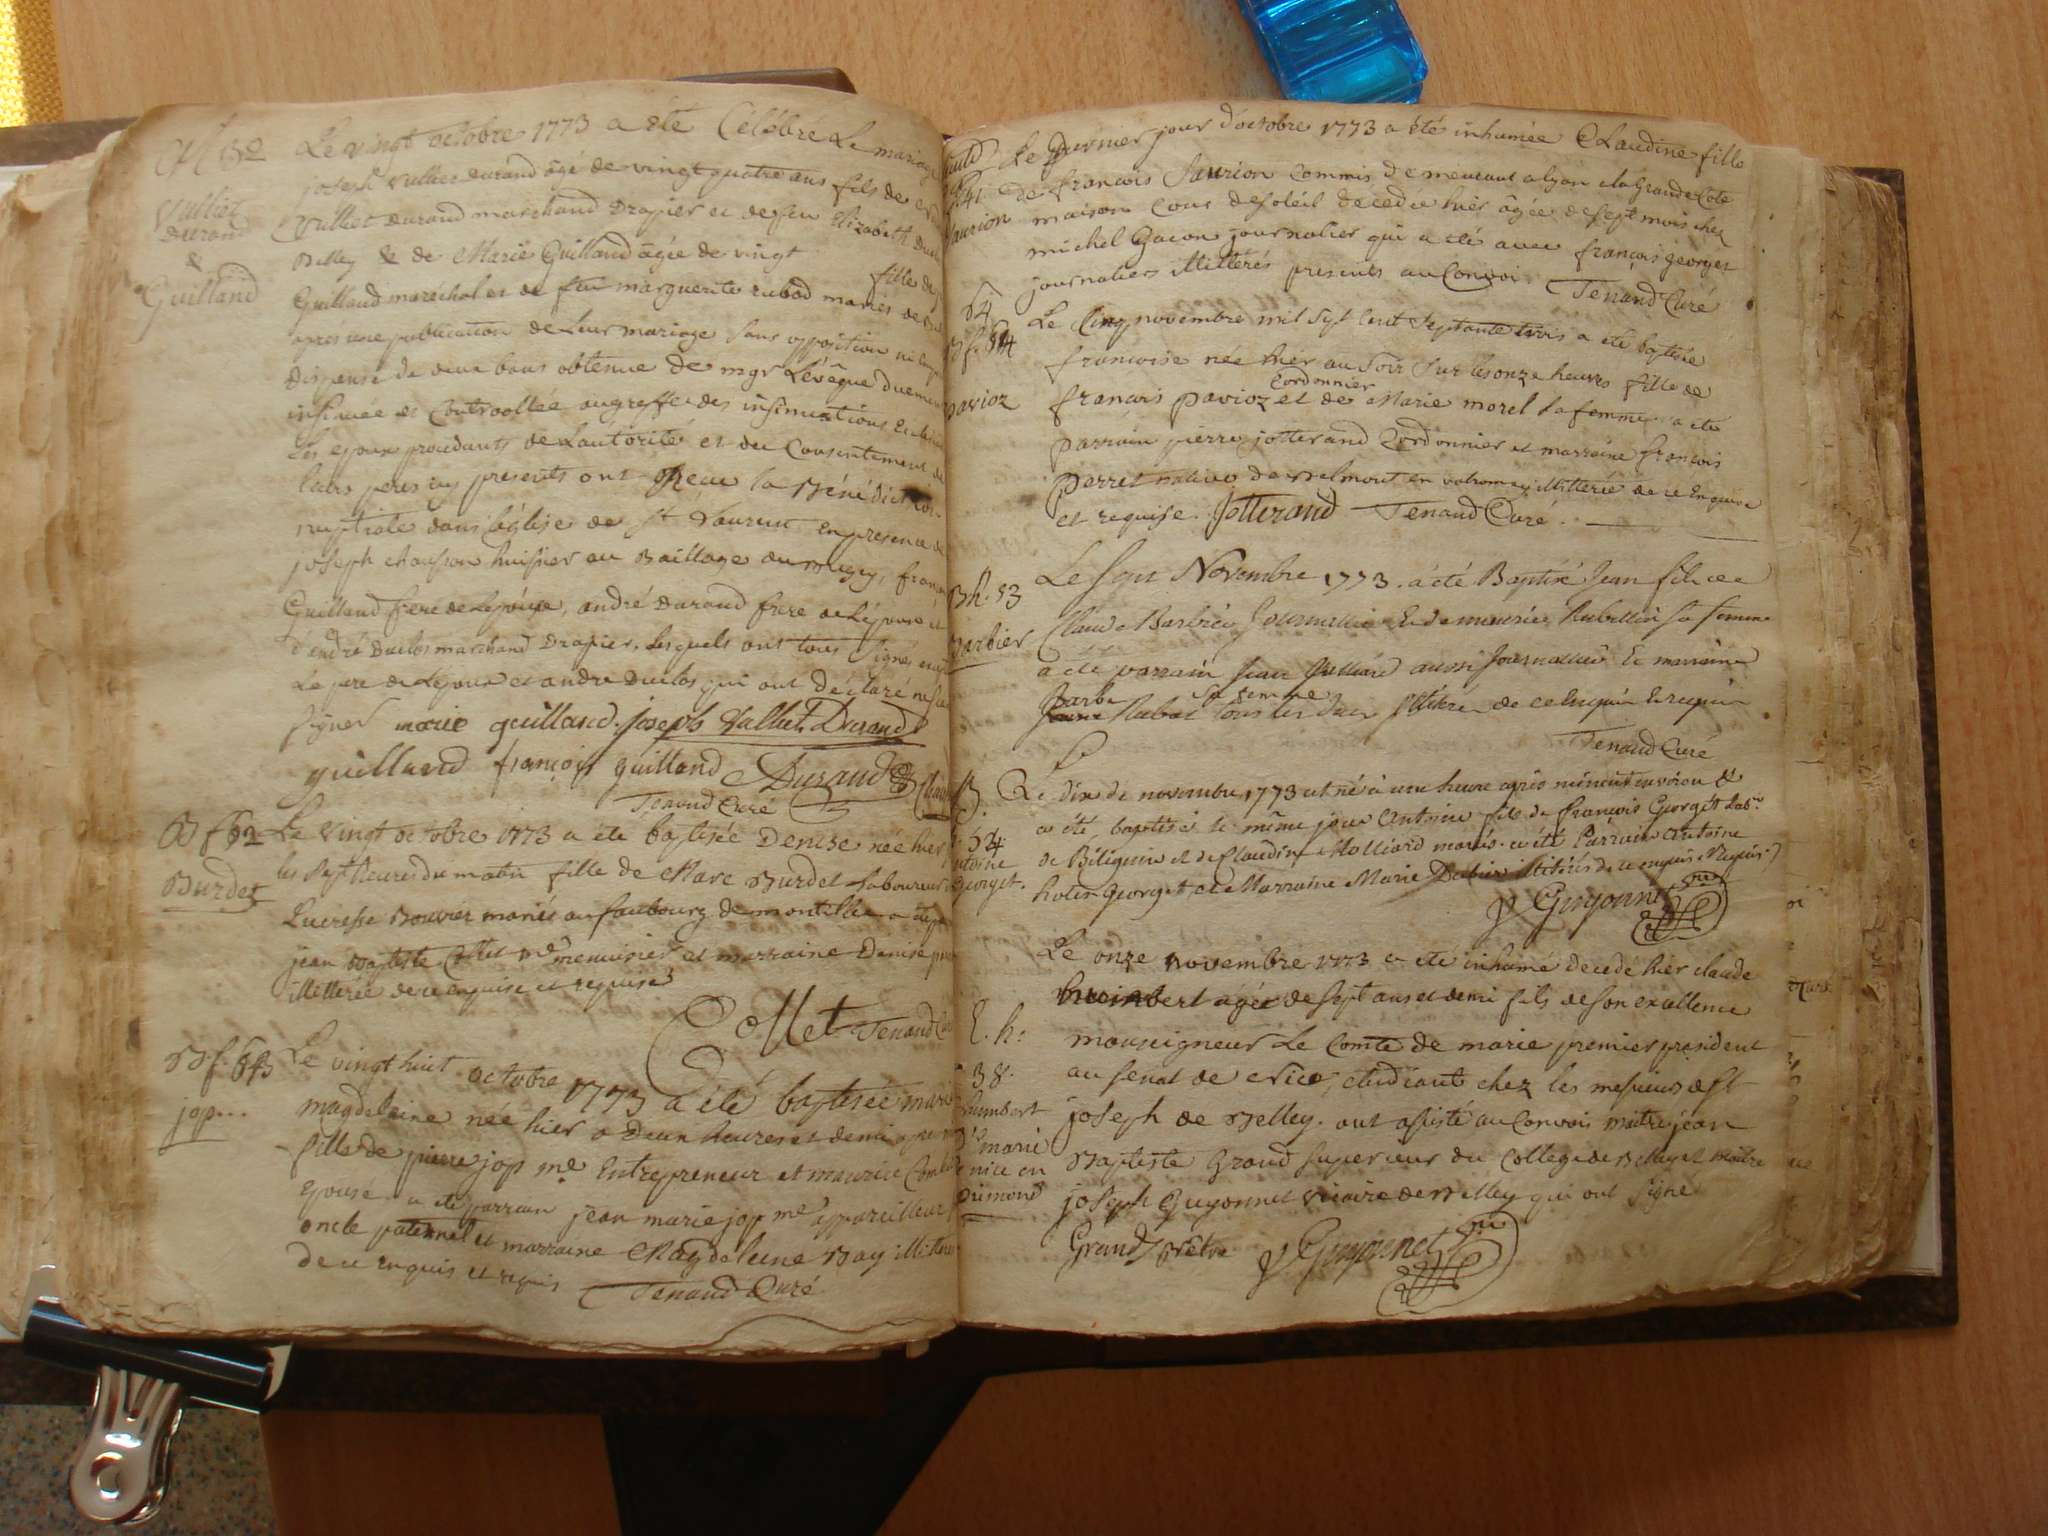 Le vingt octobre 1773 a été Célébre Le mariage
joseph Vulliet durand âgé de vingt quatre ans fils de
Vulliet
Durand
&
Guilland
Vulliet durand marchand Drapier et de feu Elizabeth
Belley & de Marie Guilland âgée de vingt
fille de
Guilland maréchal et de feu marguerite rubod mariés de
après une publication de Leur mariage sans opposition ni
Dispense de deux bans obtenue de mgr L'évêque duement
insinuée et Controollée au greffe des insinuations
Les epoux procedants de L'autorité et du Consentement de
leurs peres icy presents ont Reçue la Bénédiction
nuptiale dans l'église de st Laurent en presence de
joseph chauson huissier au Baillage du Bugey, francois
Guilland frere de L'épouse, andré Durand frere de L'épous et
d'andré Duclos marchand Drapier, Lesquels ont tous signés
Le pere de L'épouse et andre Duclos qui ont déclaré ne
signer marie guilland. joseph Vulliet Durand
guilland françois guilland Durand
Tenand Curé
B f 52
Burdet
Le vingt octobre 1773 a été baptisée Denise née hier
les sept heures du matin fille de Marc Burdet Laboureur
Lucresse Bouvier mariés au faubourg de
jean Baptiste Collet me menuisier et marraine Denise
illetterée de ce enquise et requise
Collet Tenand
B f. 53
jop...
Le vingt huit octobre 1773 a été baptisée marie
magdelaine née hier a deux heures et demi
fille de pierre jop me Entrepreneur et maurise
epouse a été parrain jean marie jop me appareilleur
oncle paternel et marraine Magdeleine Bay
de ce enquis et requis Tenand Curé
Le Dernier jour d'octobre 1773 a été inhumée Claudine fille
de francois Saurion Commis Demeurant a lyon a la Grande Cote
Saurion
maison Cour de soléil decedée hier âgée de sept mois chez
michel Gacon journalier qui a été avec francois georges
journaliers illitterés presents au Convoi Tenand Curé
54
pavioz
Le Cinq novembre mil sept cent septante trois a été baptisée
francoise née hier au soir sur les onze heures fille de
Cordonnier
francois pavioz et de Marie morel sa femme a été
parrain pierre jotterand Cordonnier et marraine francois
perret native de Belmont en valromey illitterée de ce Enquise
et requise. Jotterand Tenand Curé.
B h. 53
Barbier
Le sept Novembre 1773. a été Baptisé Jean fils de
Claude Barbier Journalier Et de Rubellin sa femme
a été parrain Jean Julliard aussi Journallier Et marraine
Barbe sa femme
Rabat tous les deux illitéré de ce Enquis Requis
Tenand Curé
B.
54
Antoine
Georget.
Le dix de novembre 1773 est né à une heure après minuit environ &
a été baptisé le même jour Antoine fils de François Georget Labr
de Billignin et de Claudine Molliard mariés. a été Parrain Antoine
Georget, et Marraine Marie illitérés de ce enquis & Requis.
J Guyonnet
Le onze Novembre 1773 a été inhumé decedé hier claude
humbert âgée de sept ans et demi fils de son excellence
E. h:
38.
humbert
De marie
de nice en
piemond
monseigneur Le Comte de marie premier president
au senat de Nice, etudiant chez les messieurs de st
joseph de Belley. ont assisté au Convoi maitre jean
Baptiste Grand superieur du College de Belley et maitre
joseph Guyonnet vicaire de Belley qui ont signé
Grand Prêtre J Guyonnet